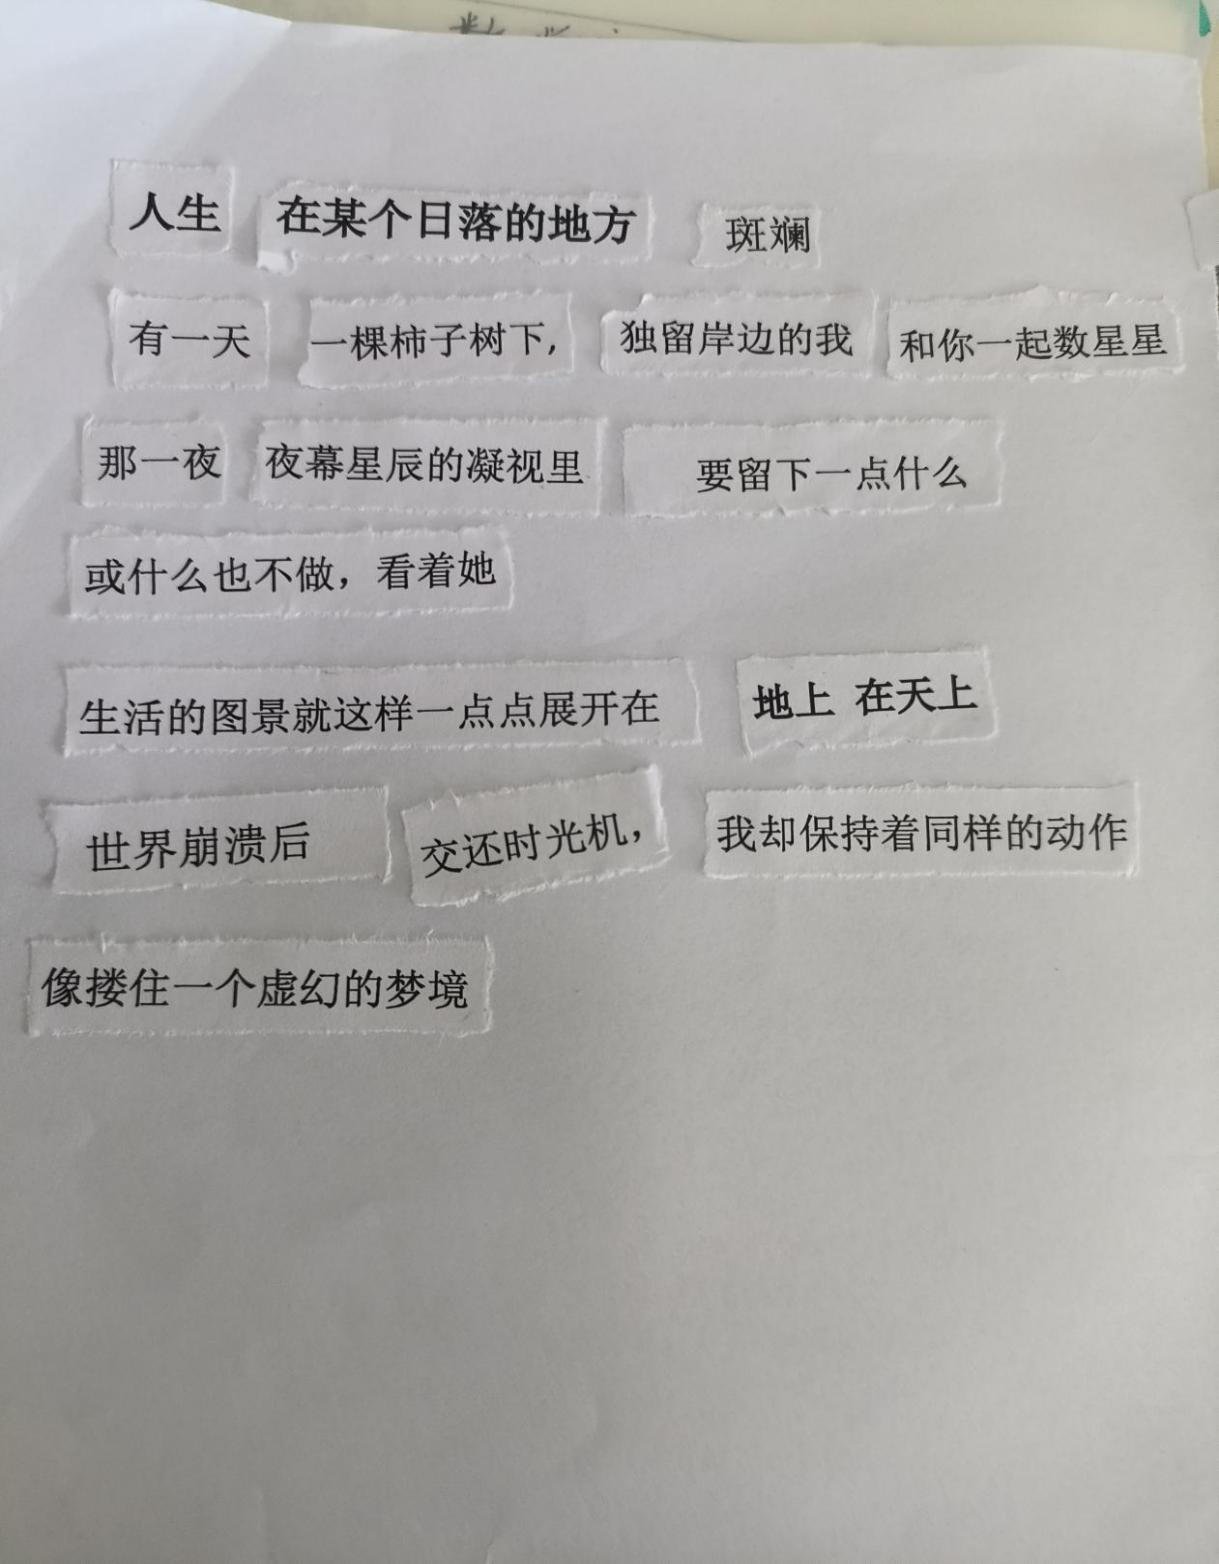 人生 在某个日落的地方 斑斓
有一天 一棵柿子树下, 独留岸边的我 和你一起数星星
那一夜 夜幕星辰的凝视里 要留下一点什么
或什么也不做，看着她
生活的图景就这样一点点展开在 地上 在天上
世界崩溃后 交还时光机， 我却保持着同样的动作
像搂住一个虚幻的梦境